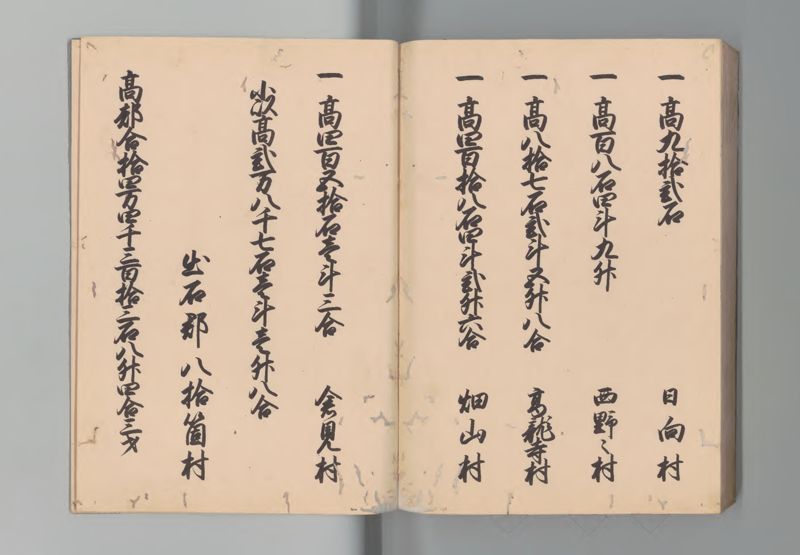 一 高九拾弐石 日向村
一 高百八石四斗九舛 西野々村
一 高八拾七石弐斗五舛八合 高龍寺村
一 高四百拾八石四斗弐舛六合 畑山村
一 高四百五拾石壱斗三合 倉見村
小以高弐万八千七石壱斗壱舛八合
出石郡 八拾箇村
高都合拾四万四千三百拾三石八舛四合三才